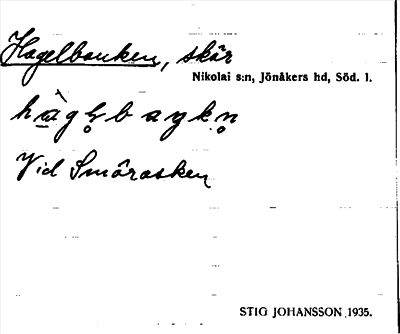 Hagelbanken, skär
Nikolai s:n, Jönåkers hd, Söd. l.
Vid Smårasken
STIG JOHANSSON 1935.